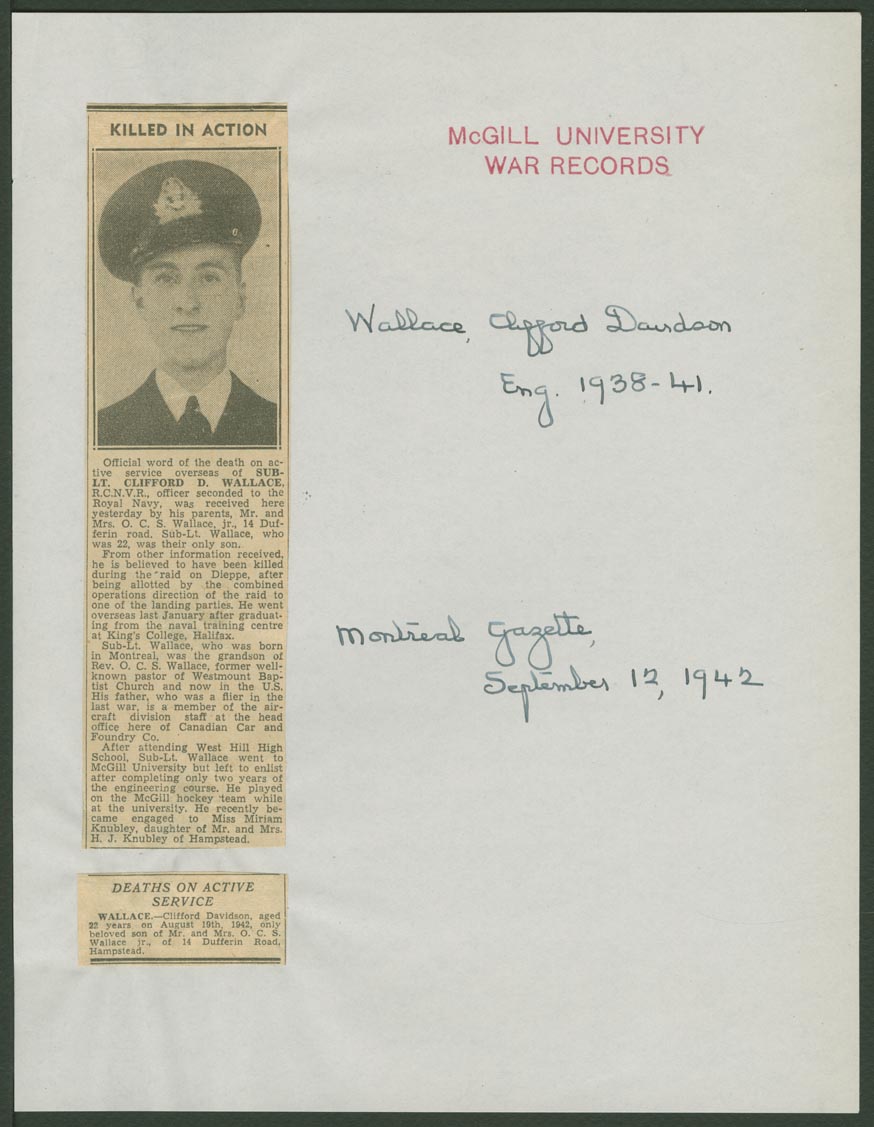 KILLED IN ACTION
Official word of the death on ac-
tive service overseas of SUB-
LT. CLIFFORD D. WALLACE,
R.C.N.V.R., officer seconded to the
Royal Navy, was received here
yesterday by his parents, Mr. and
Mrs. O. C. S. Wallace, jr., 14 Duf-
ferin road. Sub-Lt. Wallace, who
was 22, was their only son.
From other information received,
he is believed to have been killed
during the raid on Dieppe, after
being allotted by the combined
operations direction of the raid to
one of the landing parties. He went
overseas last January after graduat-
ing from the naval training centre
at King's College, Halifax.
Sub-Lt. Wallace, who was born
in Montreal, was the grandson of
Rev. O. C. S. Wallace, former well-
known pastor of Westmount Bap-
tist Church and now in the U.S.
His father, who was a flier in the
last war, is a member of the air-
craft division staff at the head
office here of Canadian Car and
Foundry Co.
After attending West Hill High
School, Sub-Lt. Wallace went to
McGill University but left to enlist
after completing only two years of
the engineering course. He played
on the McGill hockey team while
at the university. He recently be-
came engaged to Miss Miriam
Knubley, daughter of Mr. and Mrs.
H. J. Knubley of Hampstead.
DEATHS ON ACTIVE
SERVICE
WALLACE.—Clifford Davidson, aged
22 years on August 19th, 1942, only
beloved son of Mr. and Mrs. O. C. S.
Wallace jr., of 14 Dufferin Road,
Hampstead.
McGILL UNIVERSITY
WAR RECORDS
Wallace, Clifford Davidson
Eng. 1938-41.
Montreal Gazette,
September 12, 1942